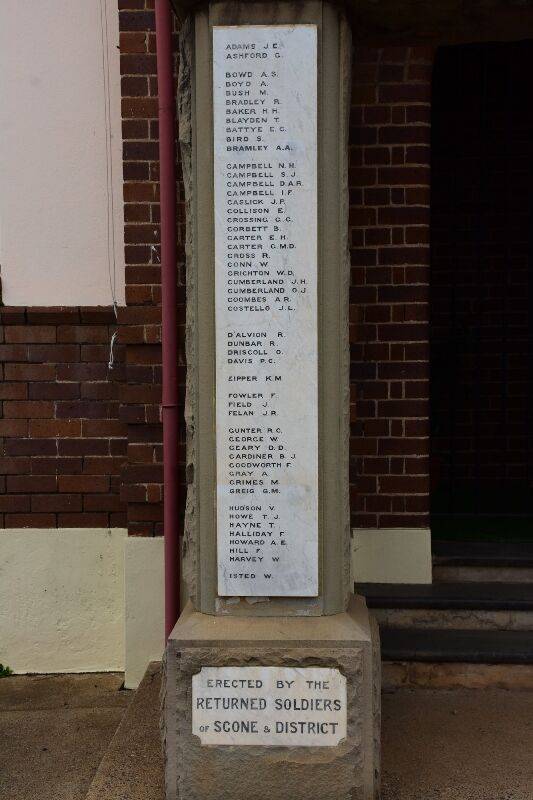 ADAMS J.E.
ASHFORD G.
BOWD A.S.
BOYD A.
BUSH M.
BRADLEY R.
BAKER H.H.
BLAYDEN T.
BATTYE E.C.
BIRD S.
BRAMLEY A.A.
CAMPBELL N.H.
CAMPBELL S.J.
CAMPBELL D.A.R.
CAMPBELL I.F.
CASLICK J.P.
COLLISON E.
CROSSING C.G.
CORBETT B.
CARTER E.H.
CARTER G.M.D.
CROSS R.
CONN W.
CRICHTON W.D.
CUMBERLAND J.H.
CUMBERLAND O.J.
COOMBES A.R.
COSTELLO J.L.
D'ALVION R.
DUNBAR R.
DRISCOLL O.
DAVIS P.C.
EIPPER K.M
FOWLER F.
FIELD J.
FELAN J.R.
GUNTER R.C.
GEORGE W.
GEARY D.D.
GARDINER B.J.
GOODWORTH F.
GRAY A.
GRIMES M.
GREIG G.M.
HUDSON V.
HOWE T.J.
HAYNE T.
HALLIDAY F.
HOWARD A.E.
HILL F.
HARVEY W.
ISTED W.
ERECTED BY THE
RETURNED SOLDIERS
OF SCONE & DISTRICT